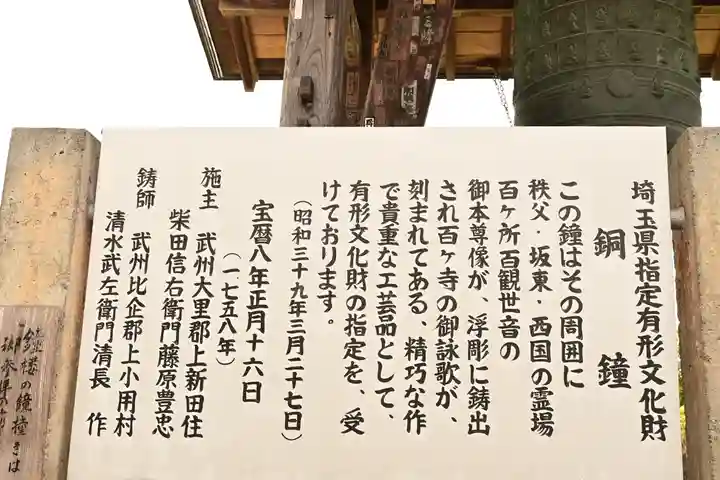 埼玉県指定有形文化財
銅鐘
この鐘はその周囲に
秩父・坂東・西国の霊場
百ヶ所百観世音の
御本尊像が、浮彫に鋳出
され百ヶ寺の御詠歌が、
刻まれてある、精巧な作
で貴重な工芸品として、
有形文化財の指定を、受
けております。
(昭和三十九年三月二十七日)
宝暦八年正月十六日
(一七五八年)
施主 武州大里郡上新田住
柴田信右衛門藤原豊忠
鋳師 武州比企郡上小用村
清水武左衛門清長 作